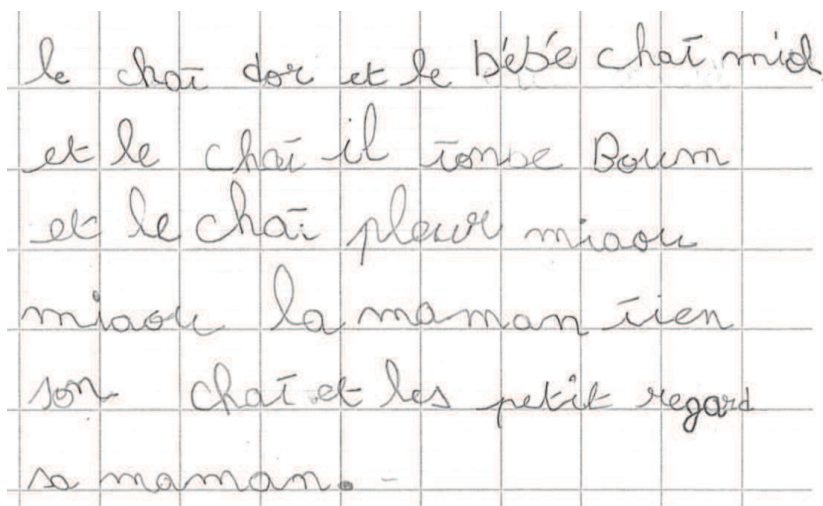 le chat dor et le bébé chat mid
et le chat il tonbe Boum
et le chat pleur miaou
miaou la maman tien
son chat et les petit regard
sa maman.-